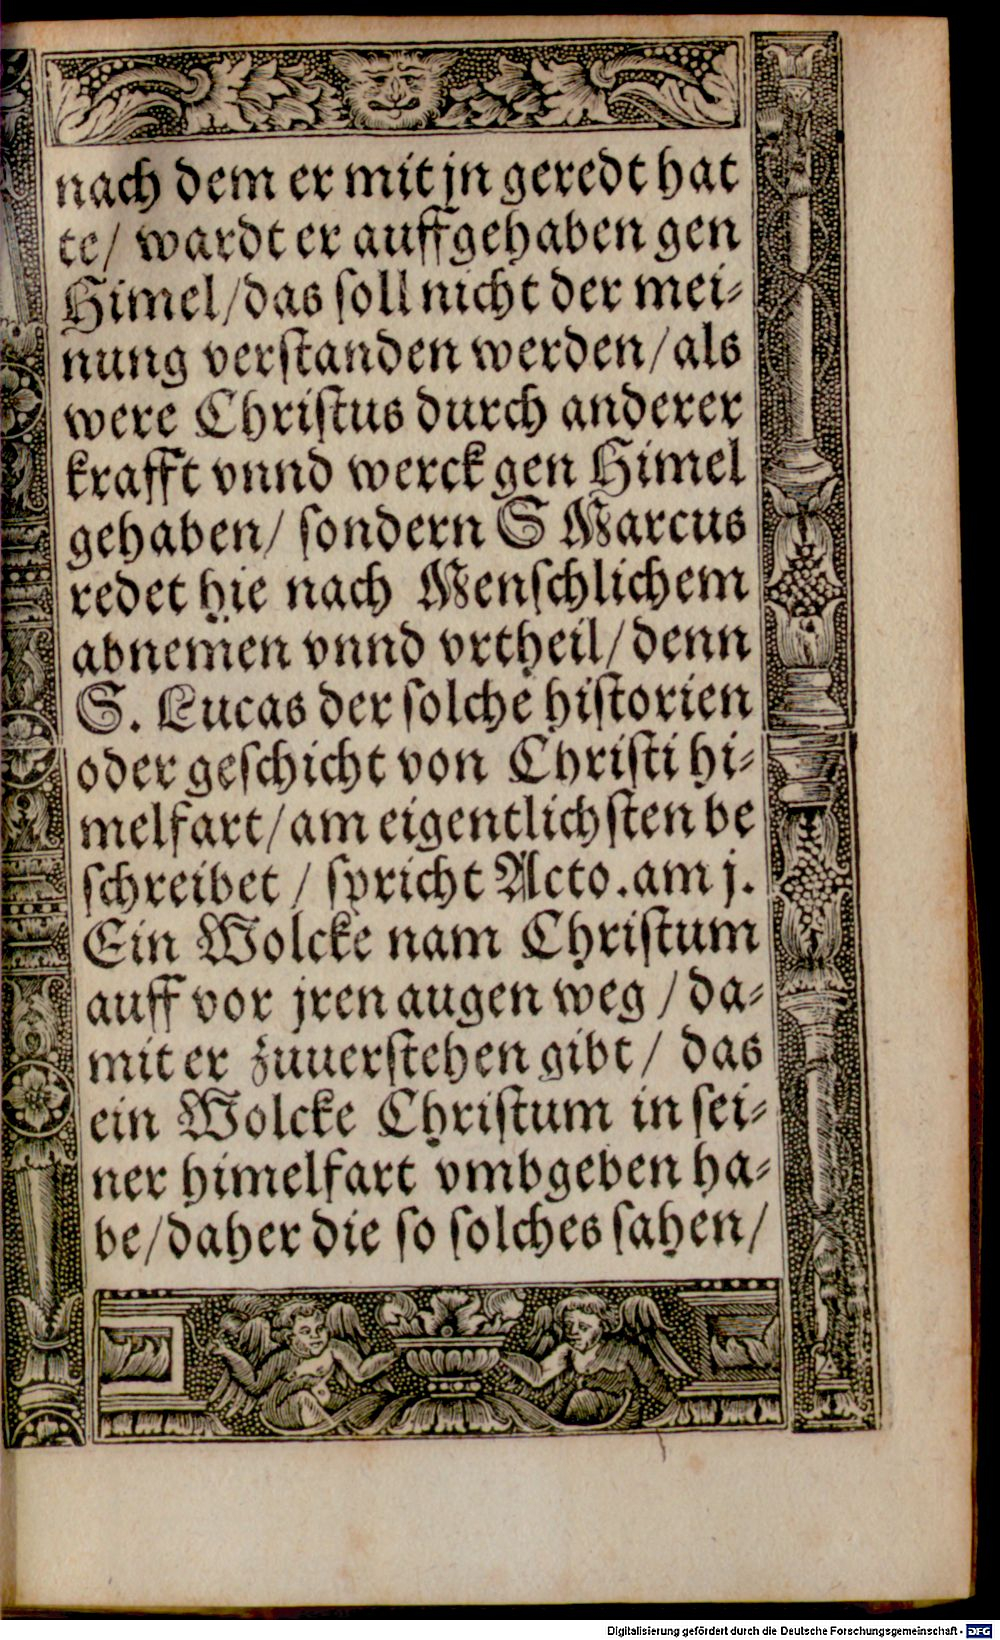 nach dem er mit jn geredt hat
te/ wardt er auffgehaben gen
Himel/das soll nicht der mei-
nung verstanden werden/als
were Christus durch anderer
krafft vnnd werck gen Himel
gehaben/ sondern S Marcus
redet hie nach Menschlichem
abnemen vnnd vrtheil/denn
S. Lucas der solche historien
oder geschicht von Christi hi-
melfart/am eigentlichsten be
schreibet / spricht Acto.am j.
Ein Wolcke nam Christum
auff vor jren augen weg /da-
mit er zuuerstehen gibt/ das
ein Wolcke Christum in sei-
ner himelfart vmbgeben ha-
be/daher die so solches sahen/
Digitalisierung gefördert durch die Deutsche Forschungsgemeinschaft - DFG